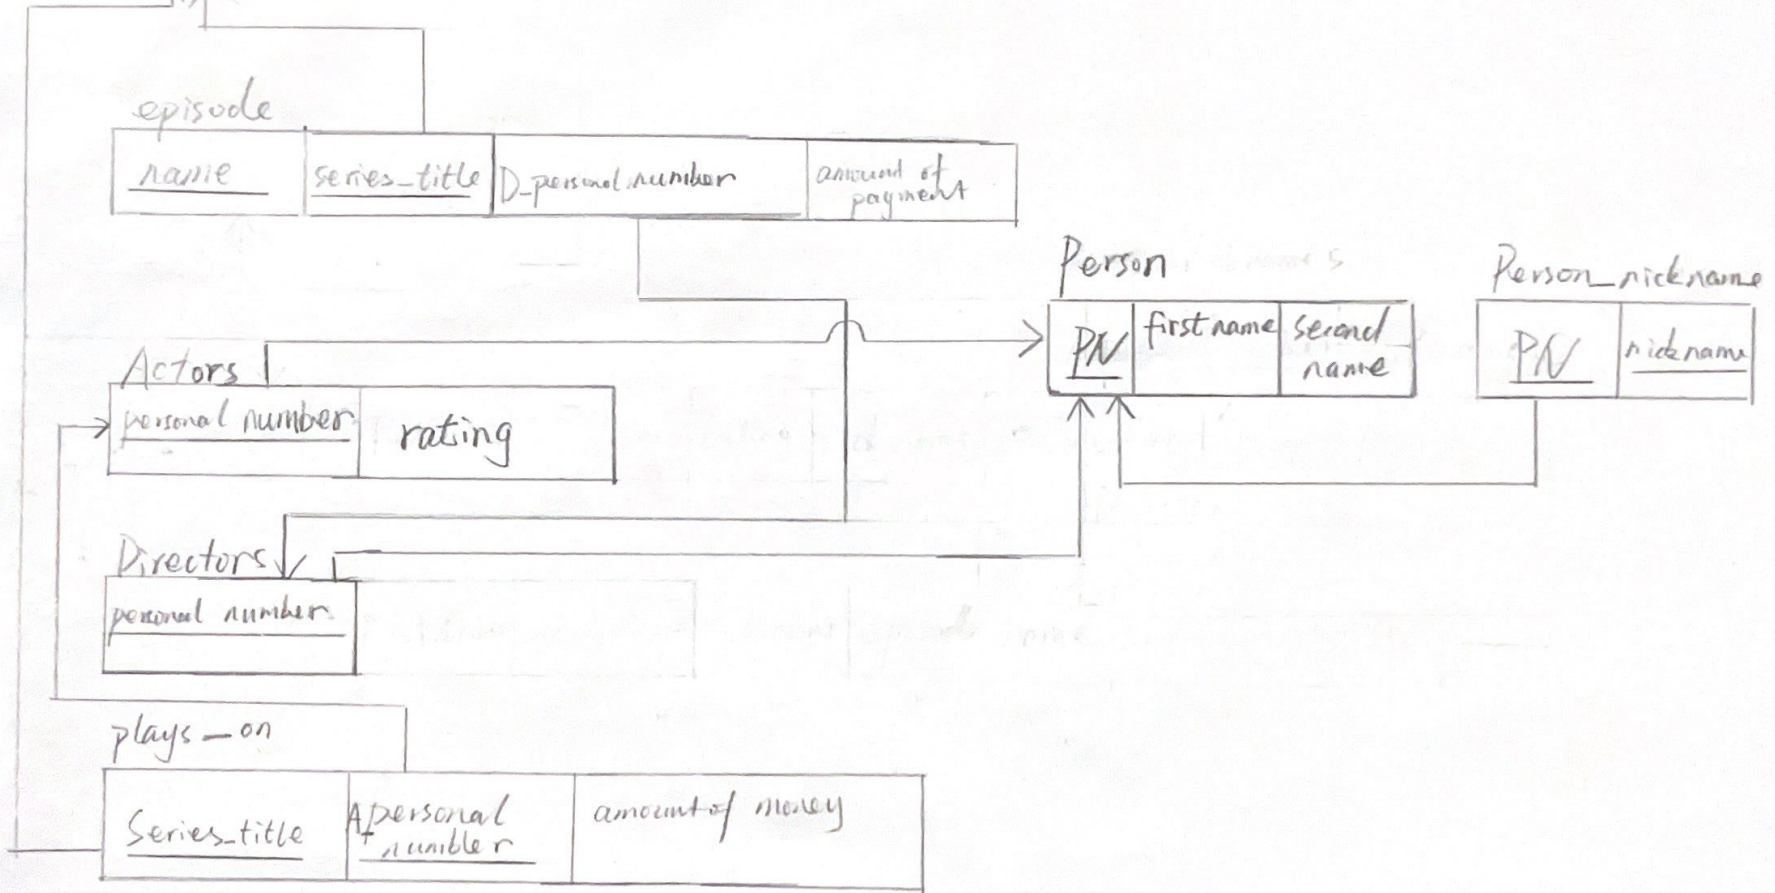 episode
name series_title D_personal number amount of
payment
Person Person_nickname
PN first name second
name
PN nickname
Actors
personal number rating
Directors
personal number
plays_on
Series_title A_personal
number
amount of money